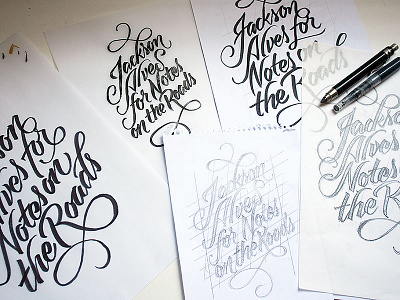 Jackson
Alves
for Notes
on the Roads
Jackson
Alves for
Notes on
the Roads
son
Alves for
Notes on
the Roads
Jackson
Alves
for Notes
on the Roads
Jackson
Alves for
Notes on
the Roads